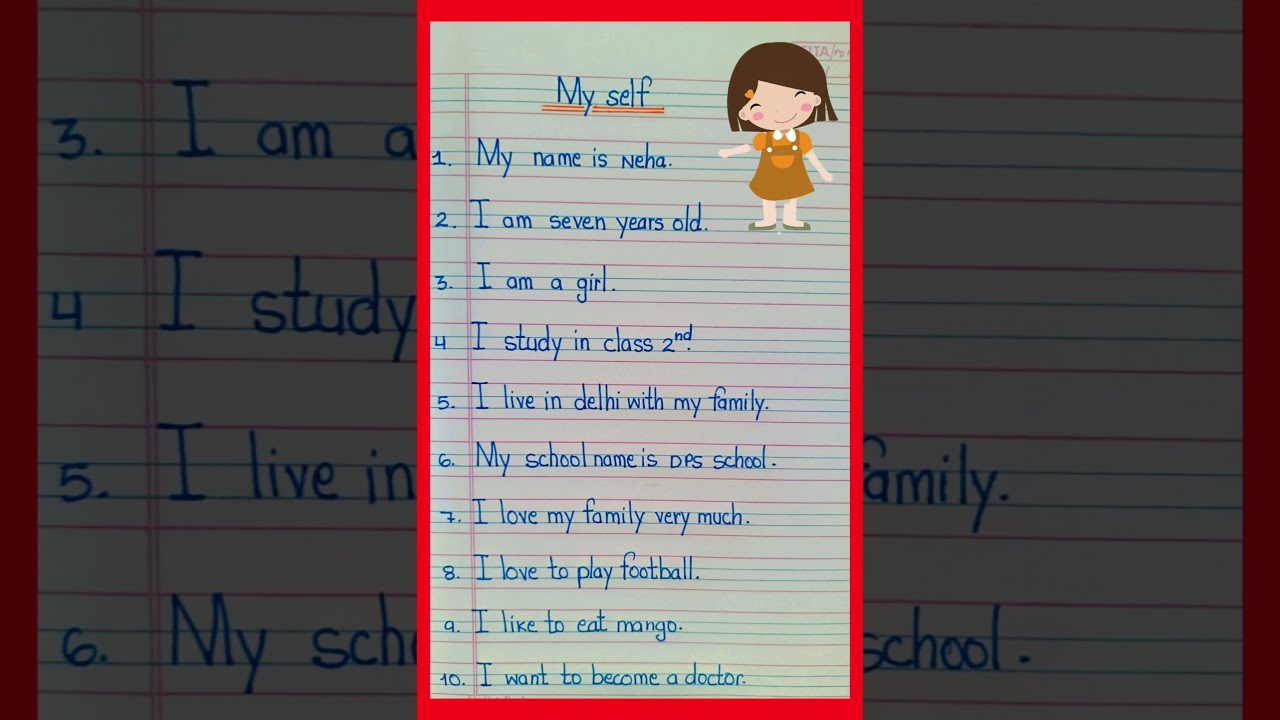 My self
1. My name is Neha.
2. I am seven years old.
3. I am a girl.
4 I study in class 2nd.
5. I live in delhi with my family.
6. My school name is DPS school.
7. I love my family very much.
8. I love to play football.
9. I like to eat mango.
10. I want to become a doctor.
3. I am a
4 I study
5. I live in
family.
6. My sch
school.